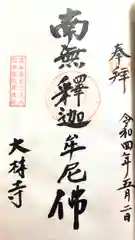 奉拝
令和四年五月二日
南無釋迦牟尼佛